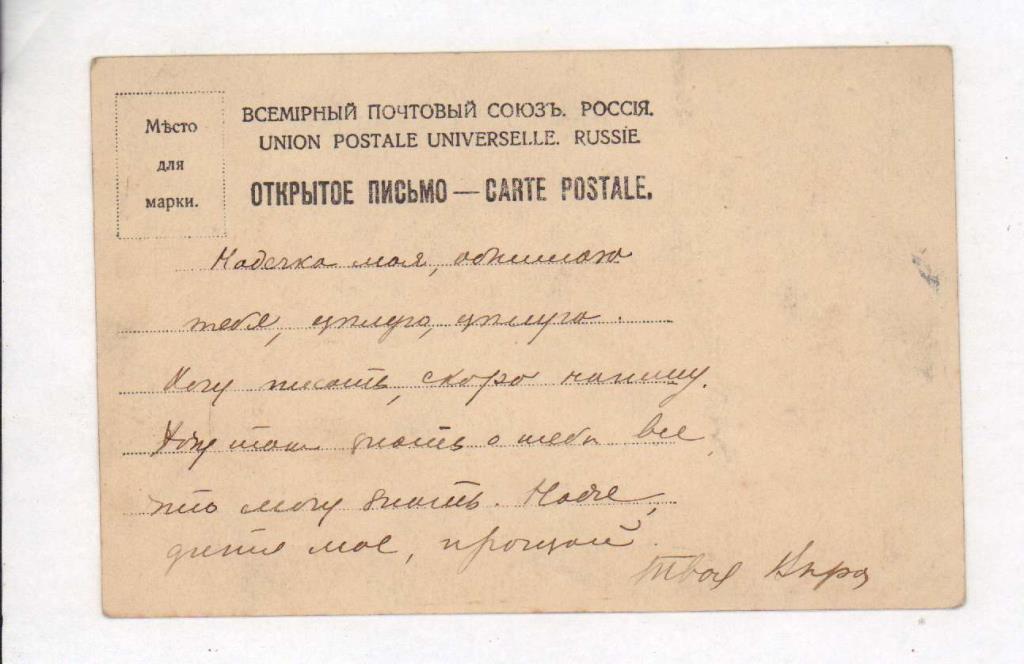 Мѣсто
для
марки.
ВСЕМІРНЫЙ ПОЧТОВЫЙ СОЮЗЪ. РОССІЯ.
UNION POSTALE UNIVERSELLE. RUSSIE
ОТКРЫТОЕ ПИСЬМО — CARTE POSTALE.
Надечка моя, обнимаю
тебя, цѣлую, цѣлую.
Хочу писать, скоро напишу.
Хочу так знать о тебѣ все,
что могу знать. Надя,
дитя мое, прощай.
Твоя Вѣра